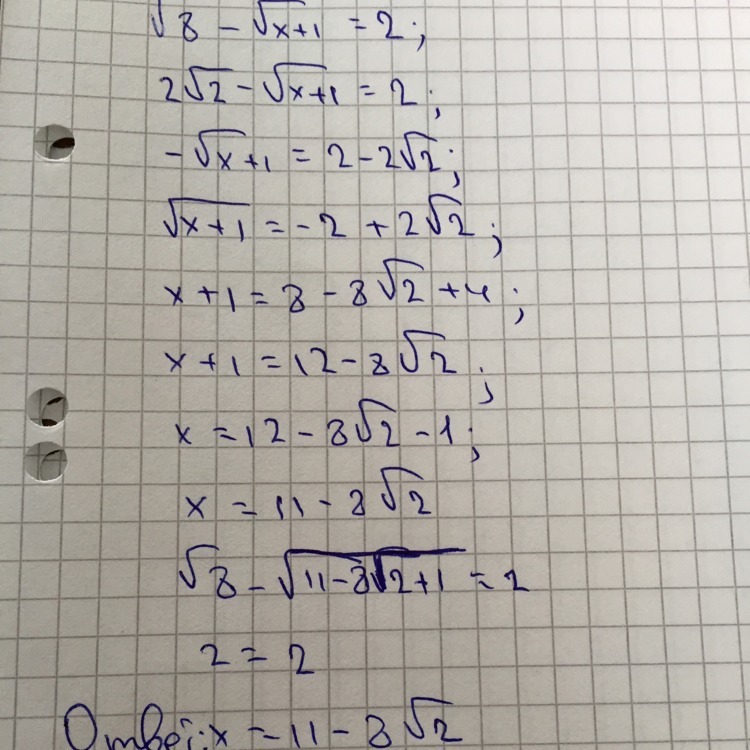 √8 - √x+1 = 2;
2√2 - √x+1 = 2;
-√x+1 = 2 - 2√2;
√x+1 = -2 + 2√2;
x+1 = 8 - 8√2 + 4;
x+1 = 12 - 8√2;
x = 12 - 8√2 - 1;
x = 11 - 8√2
√8 - √11-8√2+1 = 2
2 = 2
Ответ: x = 11 - 8√2